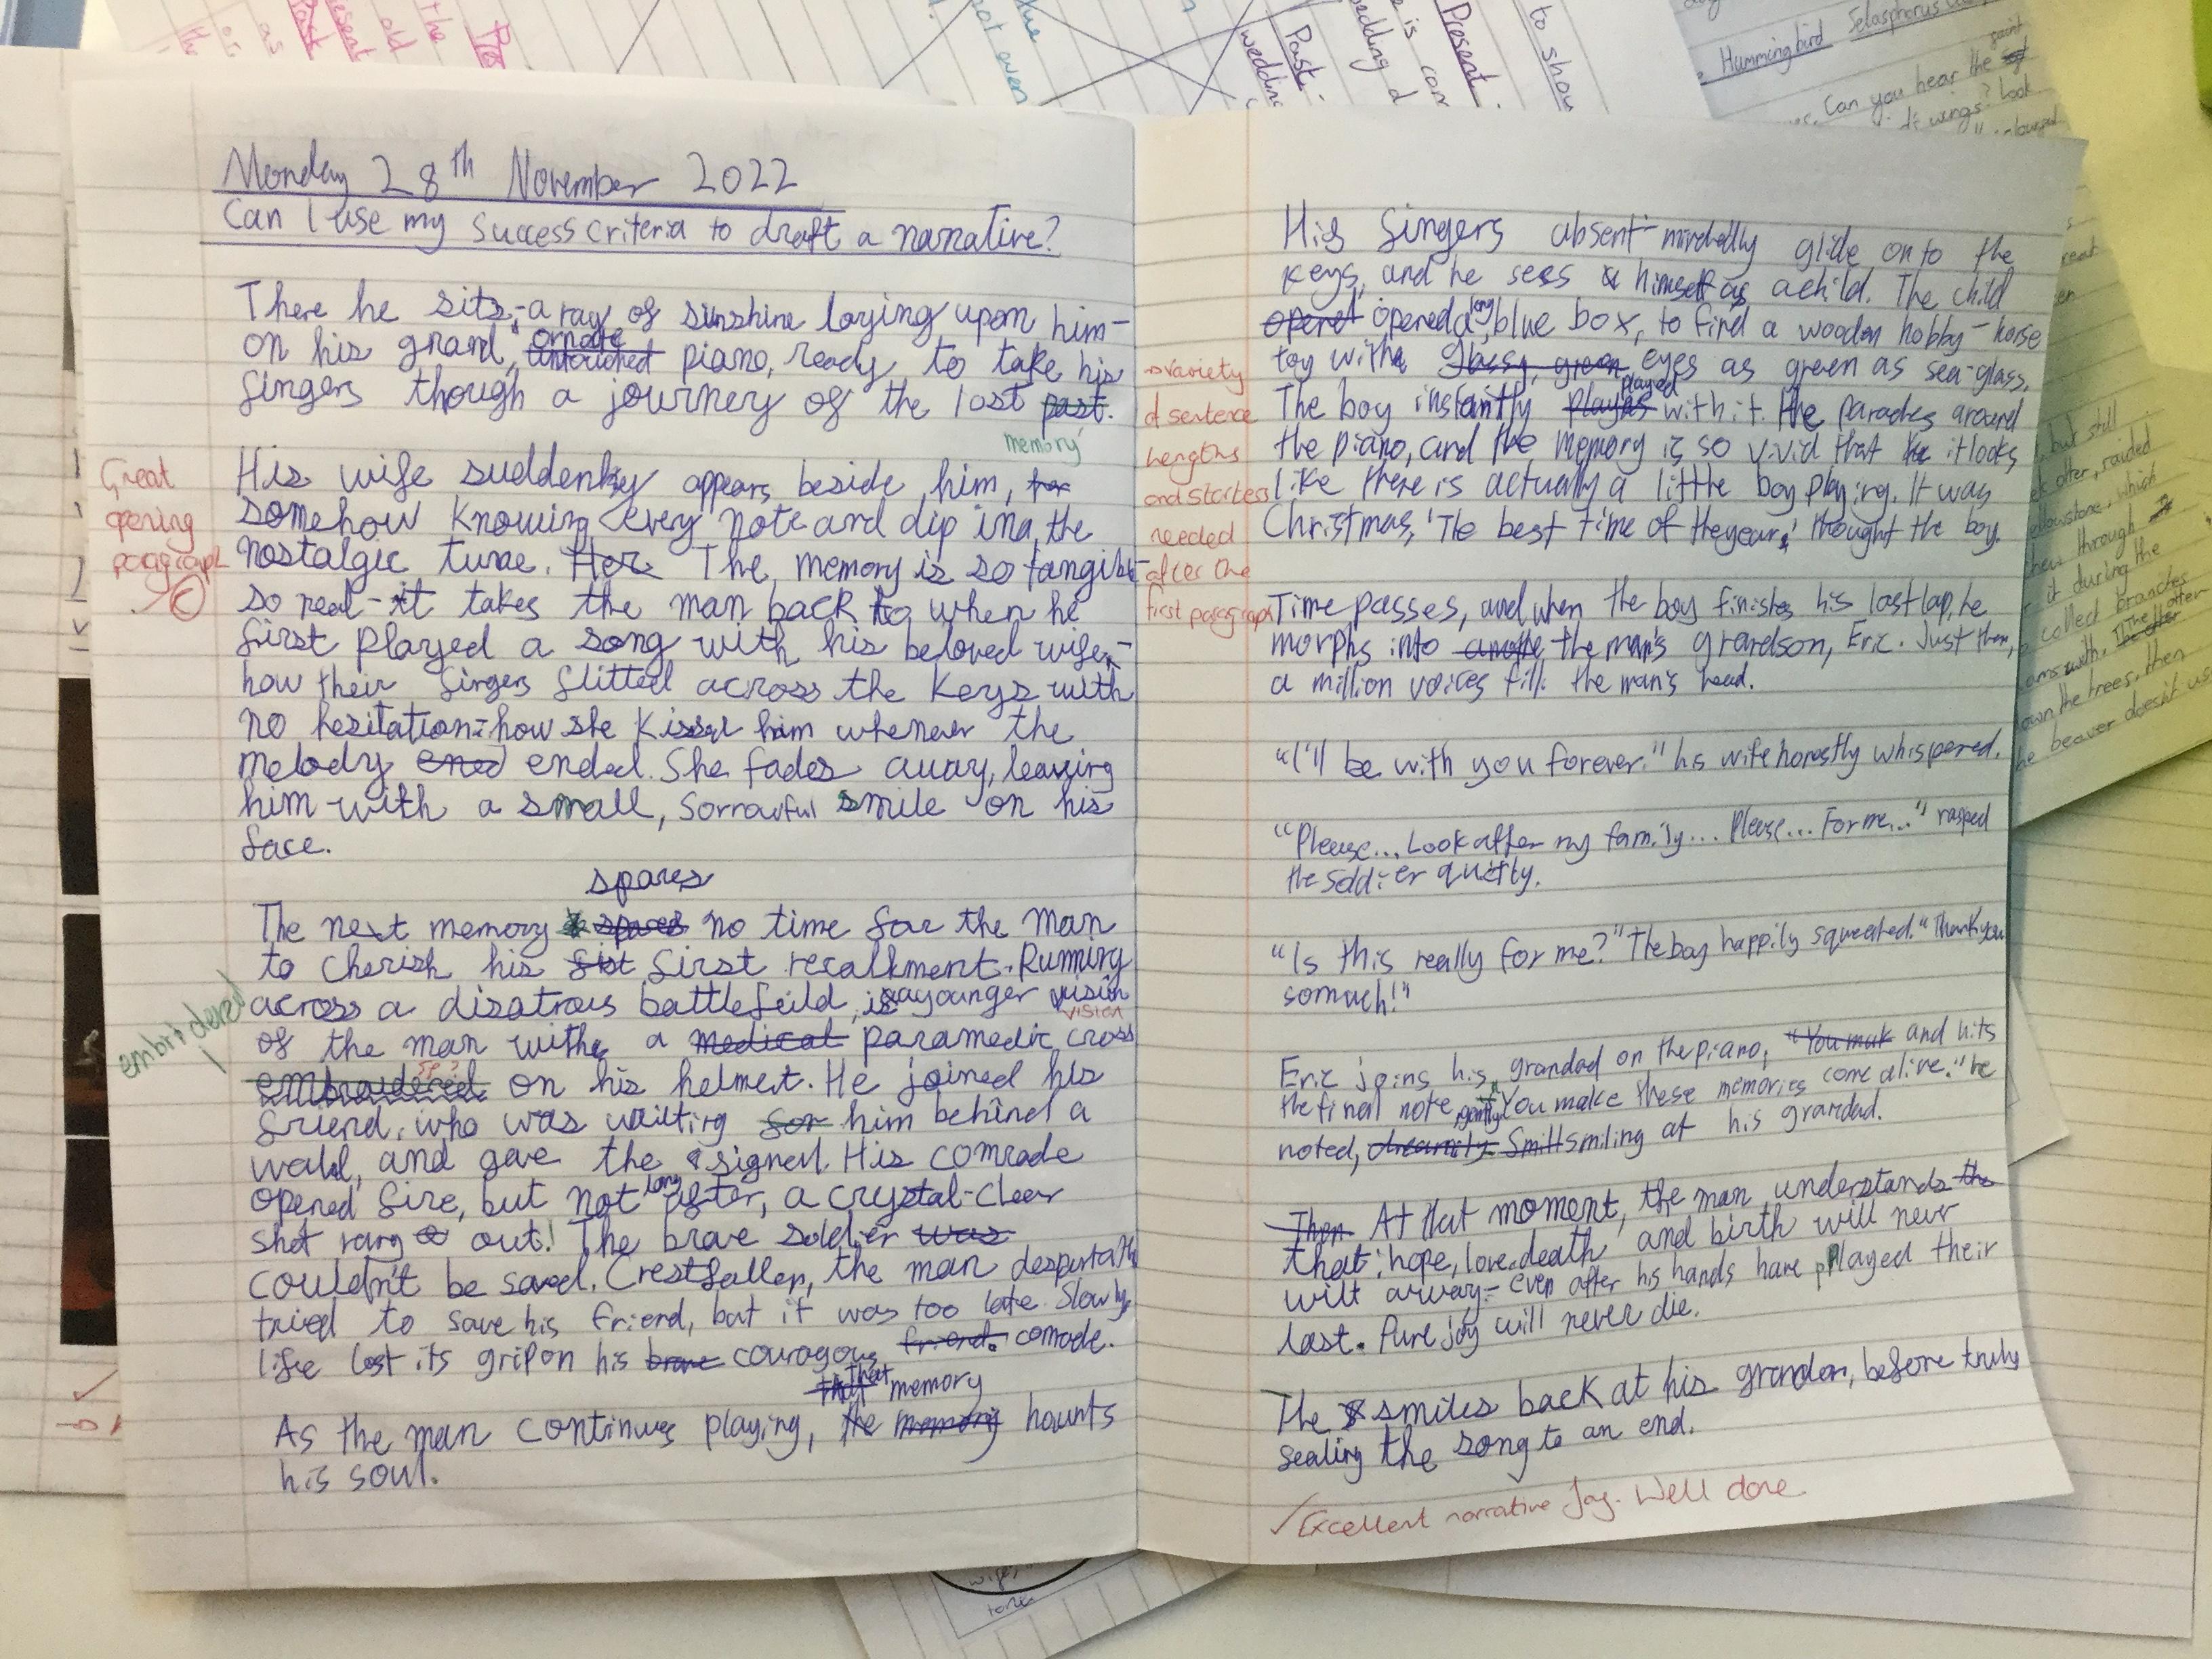 Monday 28th November 2022
Can I use my success criteria to draft a narrative?
There he sits,-a ray of sunshine laying upon him-
on his grand, ornate untouched piano, ready to take his
fingers though a journey of the lost past.
memory
His wife suddenly appears beside him, for
somehow knowing every note and dip in a the
nostalgic tune. Her The memory is so tangible-
so real-it takes the man back to when he
first played a song with his beloved wife-
how their fingers flitted across the keys with
no hezitation-how she kissed him whenever the
melody ened ended. She fades away, leaving
him with a small, sorrowful smile on his
face.
spares
The next memory spares no time for the man
to cherish his fist first recalkment. Running
across a disatrous battlefeild, is a younger vision
vision
of the man with a medical paramedic cross
embroidered on his helmet. He joined his
sp
friend, who was waiting for him behind a
wall, and gave the signel. His comrade
opened fire, but not long after, a crystal-clear
shot rang out! The brave soldier was
couldn't be saved. Crestfallen, the man despratly
tried to save his friend, but it was too late. Slowly,
life lost its grip on his brave couragous friend. comade.
that that memory
As the man continues playing, the memory haunts
his soul.
Great
opening
paragraph
embroidered
His fingers absent-mindedly glide onto the
keys, and he sees himself as a child. The child
opened opened a long blue box, to find a wooden hobby-horse
toy with glassy, green eyes as green as sea-glass.
The boy instantly plays played with it. He parades around
the piano, and the memory is so vivid that it looks
like there is actually a little boy playing. It was
Christmas, 'The best time of the year,' thought the boy.
variety
of sentence
lengths
and starters
needed
after the
first paragraph
Time passes, and when the boy finishes his last lap, he
morphs into anothe the man's grandson, Eric. Just then,
a million voices fill the man's head.
"I'll be with you forever." his wife honestly whispered.
"Please... Look after my family... Please... For me..." rasped
the soldier quietly.
"Is this really for me?" The boy happily squeaked. "Thank you
so much!"
Eric joins his grandad on the piano, "You mak and hits
the final note gently. "You make these memories come alive." he
noted, dreamily. smiling at his grandad.
Then At that moment, the man understands the
that: hope, love, death and birth will never
wilt away- even after his hands have played their
last. Pure joy will never die.
He smiles back at his grandson, before truly
sealing the song to an end.
✓Excellent narrative Jay. Well done
Hummingbird
Can you hear the
wings? Look
Present
Past
to show